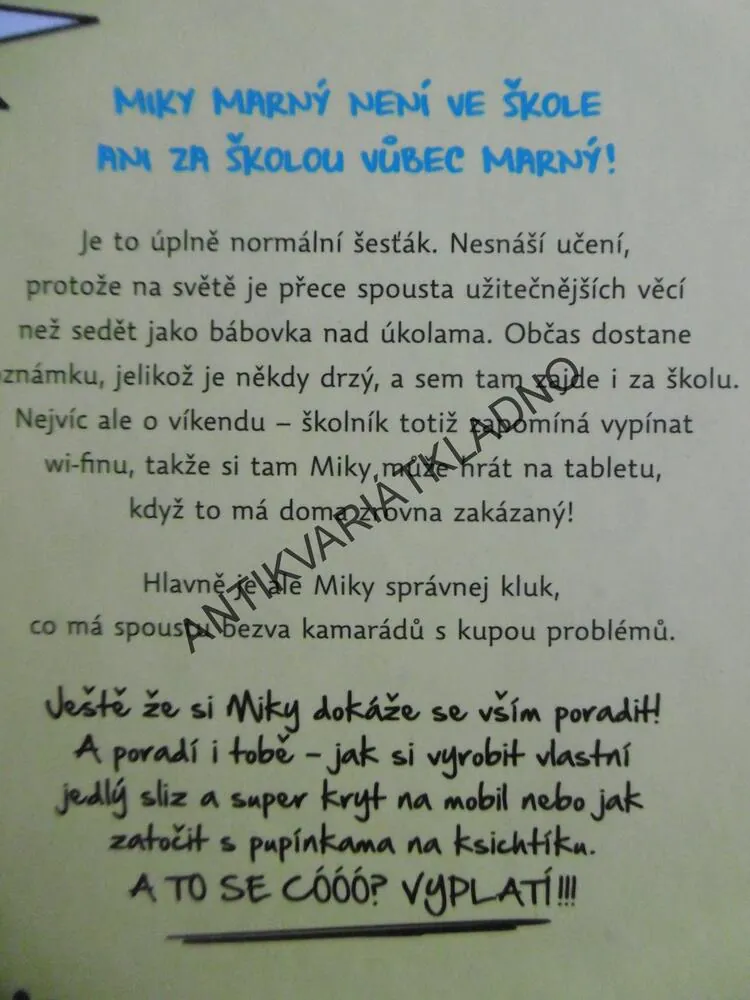 MIKY MARNÝ NENÍ VE ŠKOLE
ANI ZA ŠKOLOU VŮBEC MARNÝ!
Je to úplně normální šesťák. Nesnáší učení,
protože na světě je přece spousta užitečnějších věcí
než sedět jako bábovka nad úkolama. Občas dostane
oznámku, jelikož je někdy drzý, a sem tam zajde i za školu.
Nejvíc ale o víkendu – školník totiž zapomíná vypínat
wi-finu, takže si tam Miky může hrát na tabletu,
když to má doma zrovna zakázaný!
Hlavně je ale Miky správnej kluk,
co má spoustu bezva kamarádů s kupou problémů.
Ještě že si Miky dokáže se vším poradit!
A poradí i tobě – jak si vyrobit vlastní
jedlý sliz a super kryt na mobil nebo jak
zatočit s pupínkama na ksichtíku.
A TO SE CÓÓÓ? VYPLATÍ!!!
ANTIKVARIÁTKLADNO